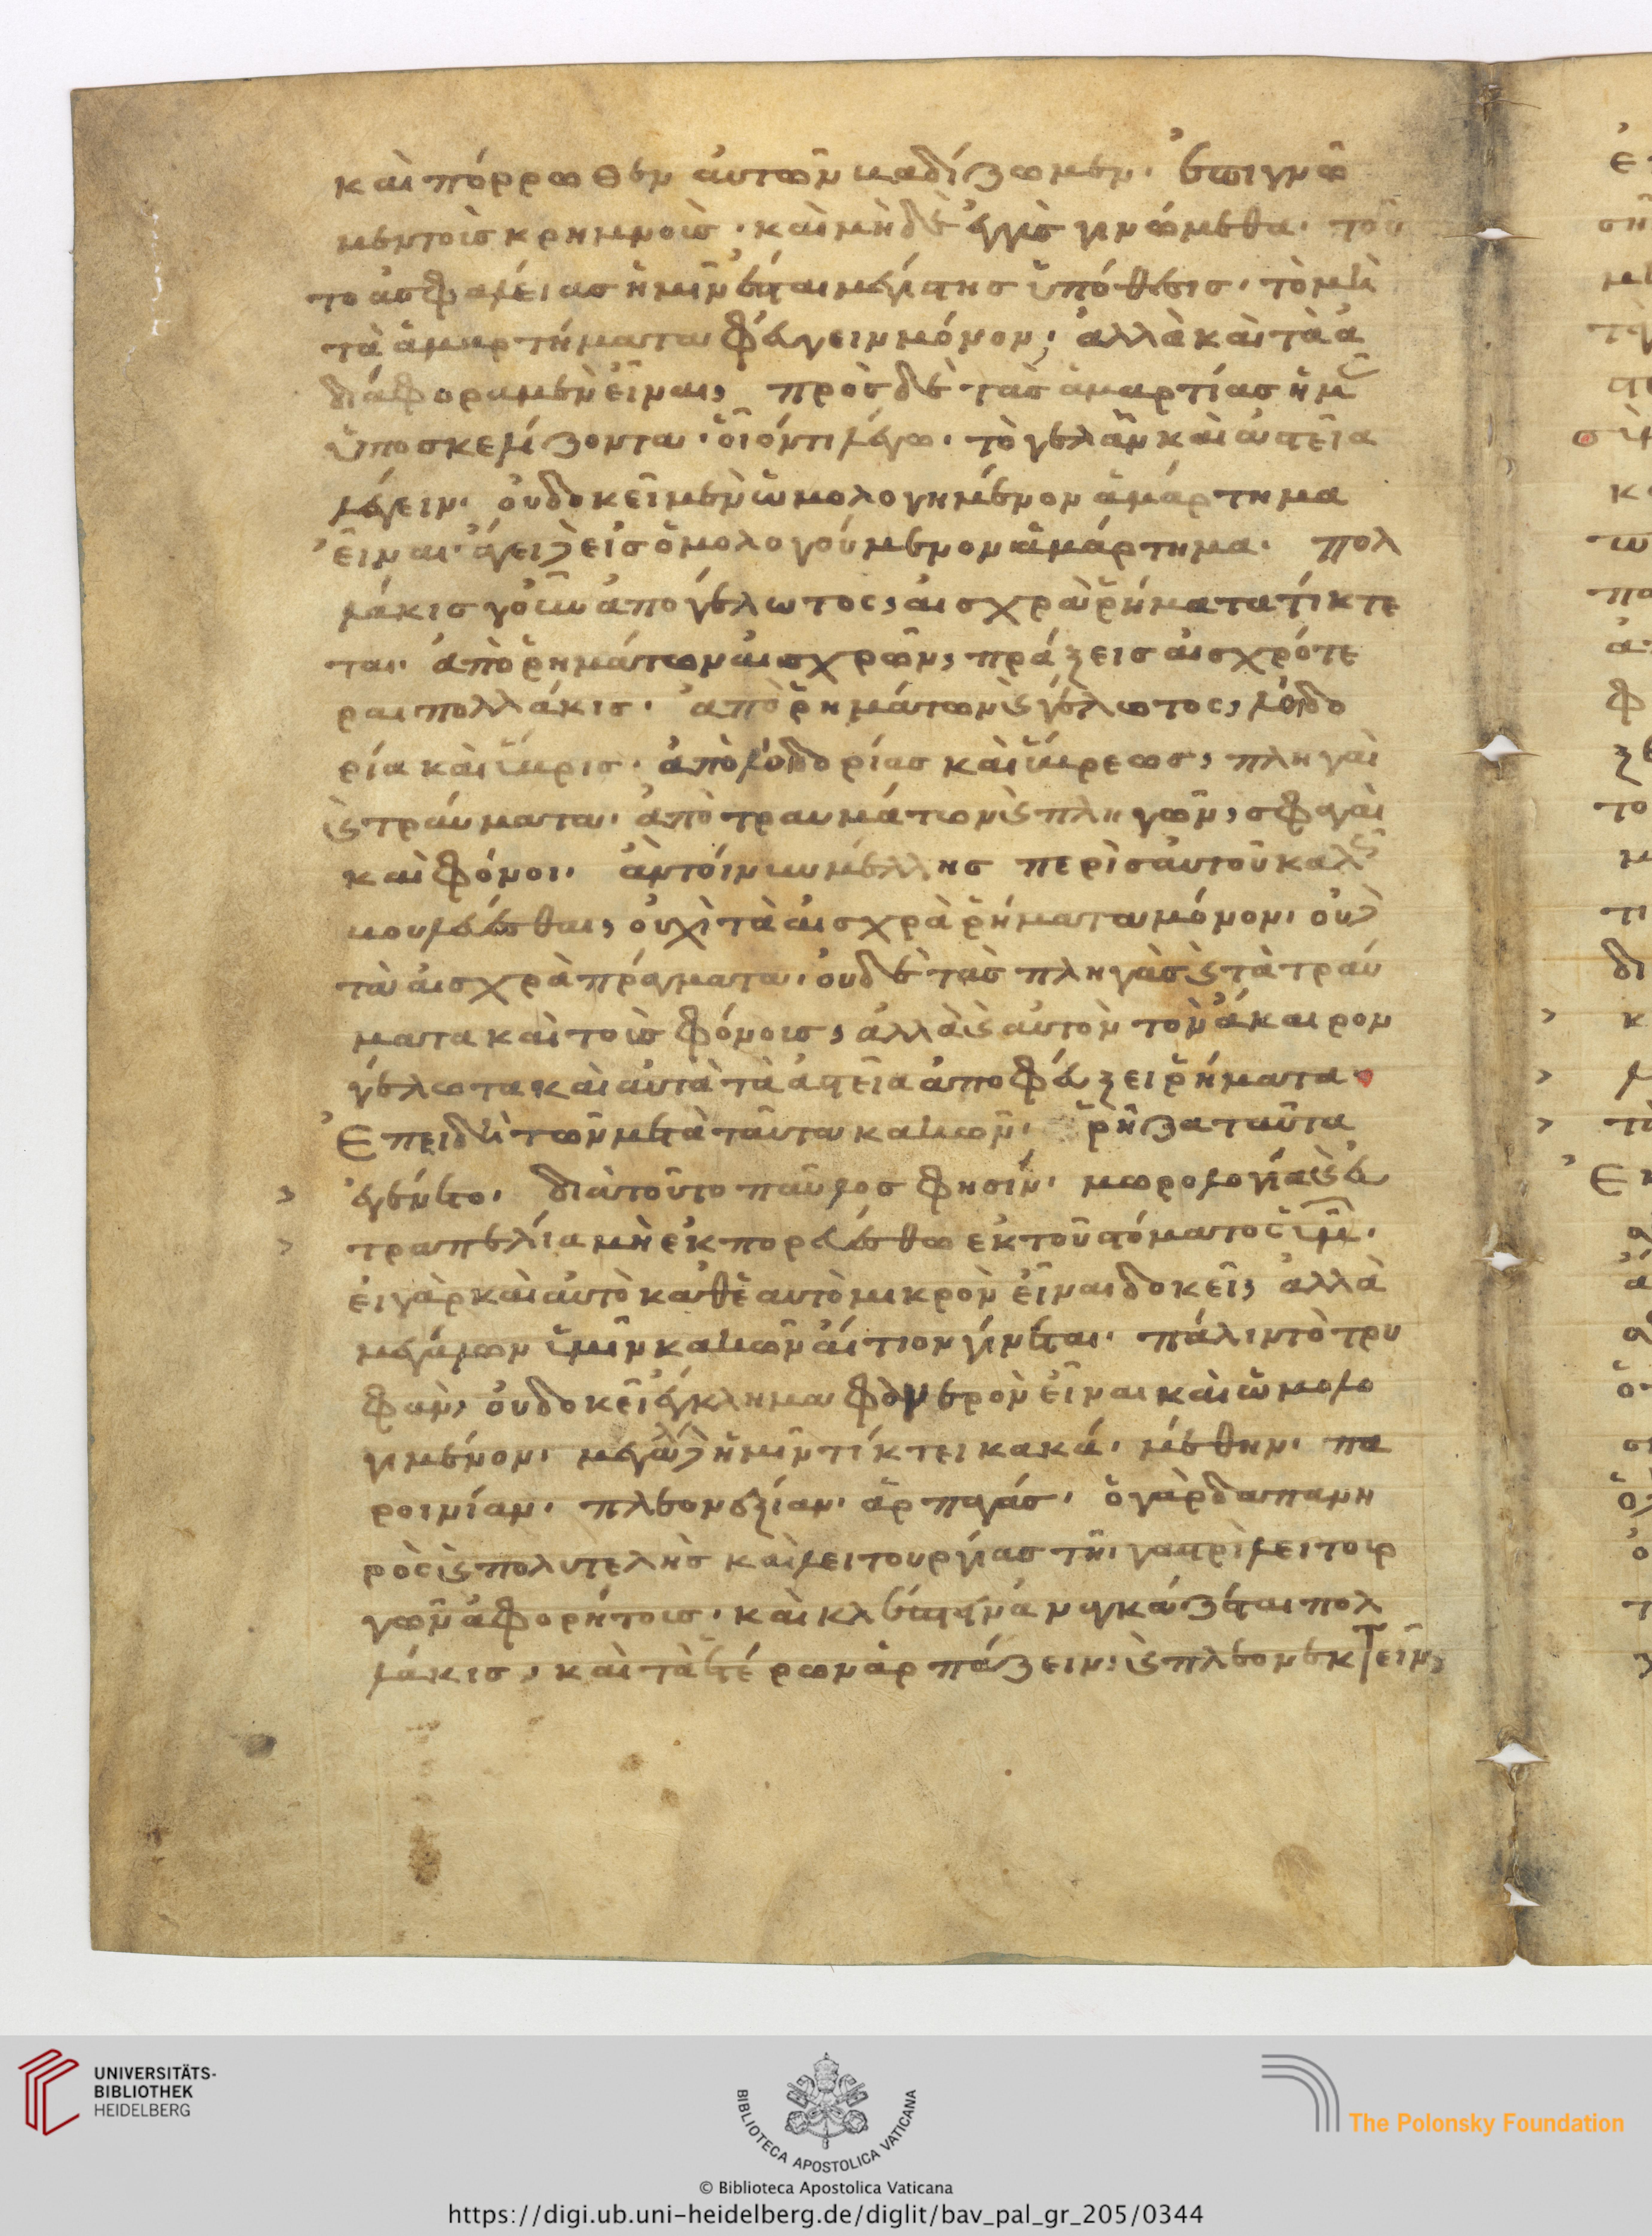 καὶ πόρρωθεν αὐτῶν βαδίζωμεν· ἐπιγνῶ
μεν τοῖς κρημνοῖς· καὶ μὴδὲ ἐγγὺς γινώμεθα· τοῦ
το ἀσφαλείας ἡμῖν ἔσται μεγίστης ὑπόθεσις· τὸ μὴ
τὰ ἁμαρτήματα φεύγειν μόνον, ἀλλὰ καὶ τὰ ἀ
διάφορα μὲν εἶναι, πρὸς δὲ τὰς ἁμαρτίας ἡμᾶς
ὑποσκελίζοντα· οἷόν τι λέγω· τὸ γελᾶν καὶ ἀστεῖα
λέγειν· οὐ δοκεῖ μὲν ὡμολογημένον ἁμάρτημα
εἶναι· ἄγει δὲ εἰς ὁμολογούμενον ἁμάρτημα· πολ
λάκις γοῦν ἀπὸ γέλωτος, αἰσχρὰ ῥήματα τίκτε
ται· ἀπὸ ῥημάτων αἰσχρῶν, πράξεις αἰσχρότε
ραι πολλάκις· ἀπὸ ῥημάτων ϗ γέλωτος, λοιδο
ρία καὶ ὕβρις· ἀπὸ λοιδορίας καὶ ὕβρεως, πληγαὶ
ϗ τραύματα· ἀπὸ τραυμάτων ϗ πληγῶν, σφαγαὶ
καὶ φόνοι· ἂν τοίνυν μέλλῃς περὶ σαυτοῦ καλῶς
βουλεύεσθαι, οὐχὶ τὰ αἰσχρὰ ῥήματα μόνον· οὐδὲ
τὰ αἰσχρὰ πράγματα· οὐδὲ τὰς πληγὰς ϗ τὰ τραύ
ματα καὶ τοὺς φόνους, ἀλλὰ ϗ αὐτὸν τὸν ἄκαιρον
γέλωτα καὶ αὐτὰ τὰ ἀστεῖα ἀποφεύξει ῥήματα·
Ἐπειδὴ τῶν μετὰ ταῦτα κακῶν· ῥίζα ταῦτα
ἐγένετο· διὰ τοῦτο παῦλος φησίν· μωρολογία ϗ εὐ
τραπελία μὴ ἐκπορευέσθω ἐκ τοῦ στόματος ὑμῶν·
εἰ γὰρ καὶ αὐτὸ καθ' ἑαυτὸ μικρὸν εἶναι δοκεῖ, ἀλλὰ
μεγάλων ὑμῖν κακῶν αἴτιον γίνεται· πάλιν τὸ τρυ
φᾶν, οὐ δοκεῖ ἔγκλημα φανερὸν εἶναι καὶ ὡμολο
γημένον· μεγάλα δὲ ἡμῖν τίκτει κακά· μέθην· πα
ροινίαν· πλεονεξίαν· ἁρπαγάς· ὁ γὰρ δαπανη
ρὸς ϗ πολυτελὴς καὶ λειτουργίας τῆι γαστρὶ λειτουρ
γῶν ἀφορήτους· καὶ κλέπτειν ἀναγκάζεται πολ
λάκις, καὶ τὰ ἑτέρων ἁρπάζειν, ϗ πλεονεκτεῖν,
UNIVERSITÄTS-
BIBLIOTHEK
HEIDELBERG
BIBLIOTECA APOSTOLICA VATICANA
The Polonsky Foundation
© Biblioteca Apostolica Vaticana
https://digi.ub.uni-heidelberg.de/diglit/bav_pal_gr_205/0344